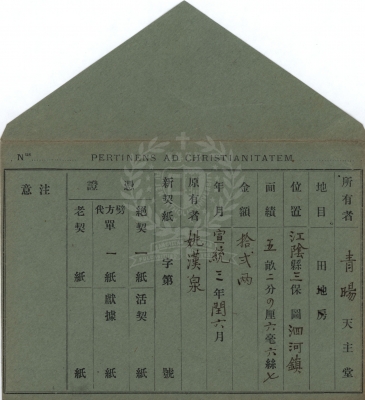 Nᵒˢ
PERTINENS AD CHRISTIANITATEM.
所有者 青暘 天主堂
地目 田地房
位置 江陰縣三保 圖泗河鎮
面績 五畝二分〇厘六毫六絲七
金額 拾弍両
年月 宣統三年閏六月
原有者 姚漢泉
新契紙 字第 號
證
絕契 一紙 活契 紙
劈方代單 一紙 獻據 紙
老契 紙 紙
注意